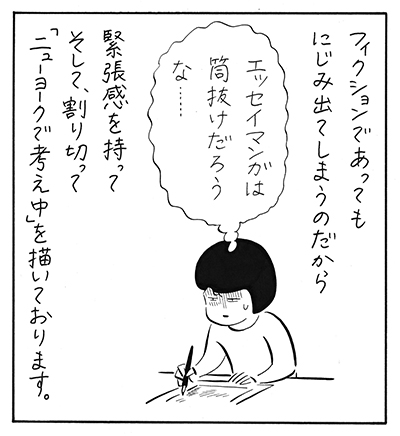 フィクションであっても
にじみ出てしまうのだから
エッセイマンガは
筒抜けだろう
な……
緊張感を持って
そして、割り切って
「ニューヨークで考え中」を描いております。